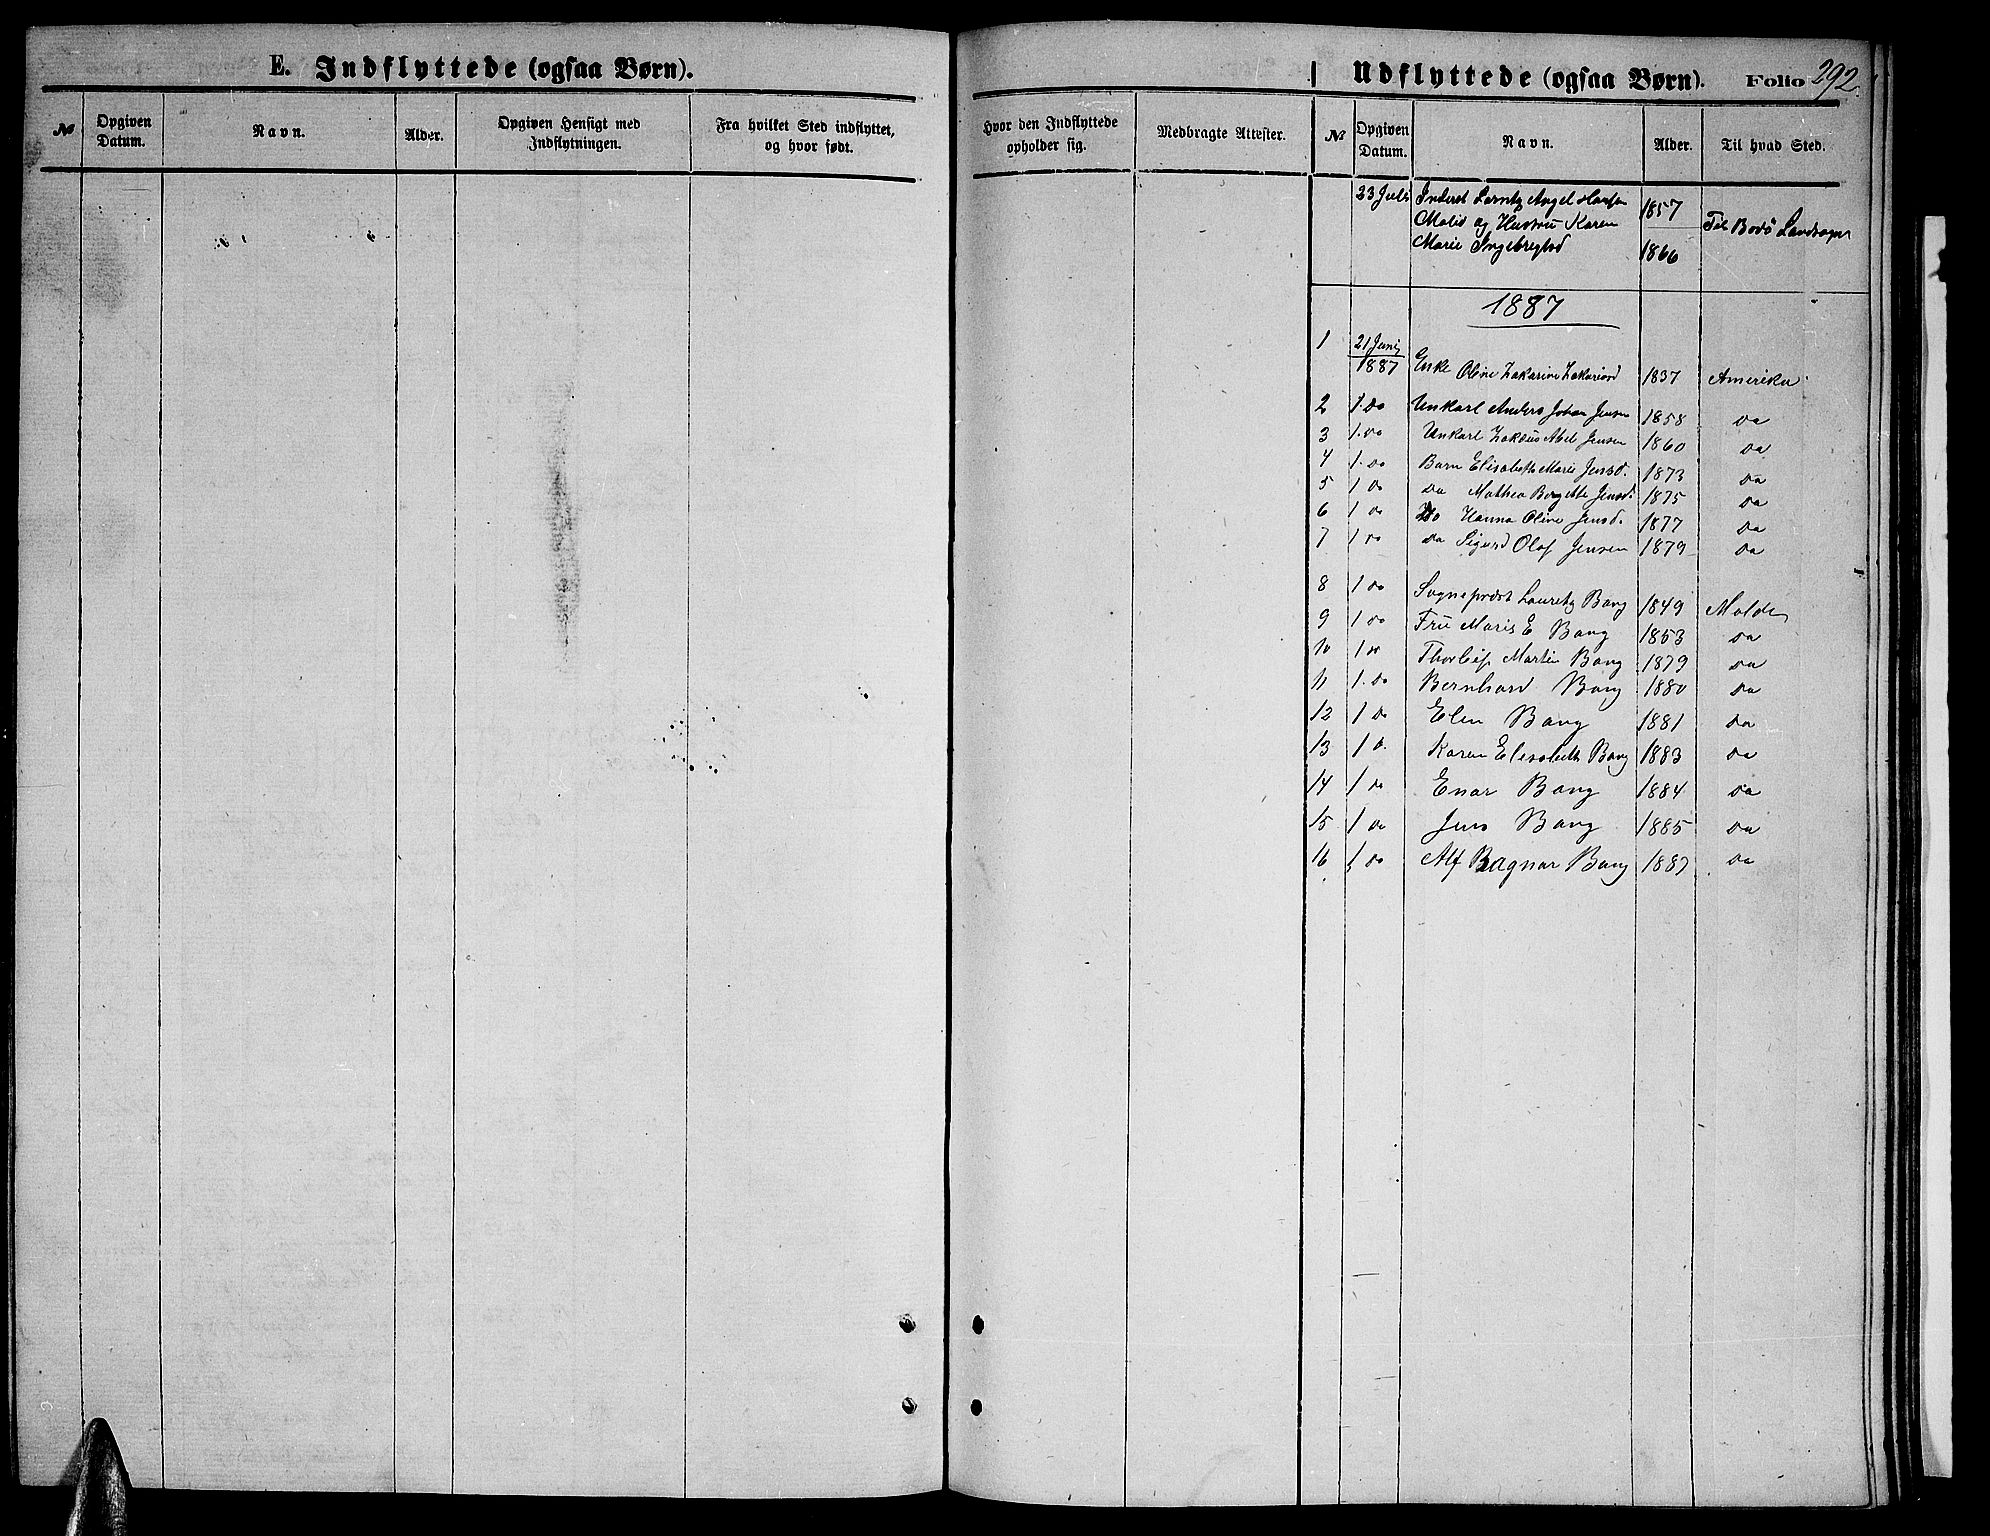 E. Indflyttede (ogsaa Børn).
№ Opgiven Datum. Navn. Alder. Opgiven Hensigt med Indflytningen. Fra hvilket Sted indflyttet, og hvor født.
Udflyttede (ogsaa Børn). Folio 292.
Hvor den Indflyttede opholder sig. Medbragte Attester. № Opgiven Datum. Navn. Alder. Til hvad Sted.
23 Juli Inderst Angel Hansen 1857
og Hustru Karen Til Bodø Landsogn
Marie Ingebregtsd 1866
1887
1 21 Juni 1887 Enke Oline Zakarine Zakariasd 1837 Amerika
2 1. do Unkarl Anders Johan Jensen 1858 do
3 1. do Unkarl Zakæus Abel Jensen 1860 do
4 1. do Barn Elisabeth Marie Jensd. 1873 do
5 1 do do Mathea Bergitte Jensd. 1875 do
6 1 do do Hanna Oline Jensd. 1877 do
7 1 do do Sigurd Olaf Jensen 1879 do
8 1 do Sognepræst Lauritz Bang 1849 Molde
9 1 do Fru Maris E Bang 1853 do
10 1 do Thorleif Martin Bang 1879 do
11 1. do Bernhard Bang 1880 do
12 1 do Elen Bang 1881 do
13 1 d. Karen Elisabeth Bang 1883 do
14 1 do Enar Bang 1884 do
15 1 do Jens Bang 1885 do
16 1 do Alf Ragnar Bang 1887 do